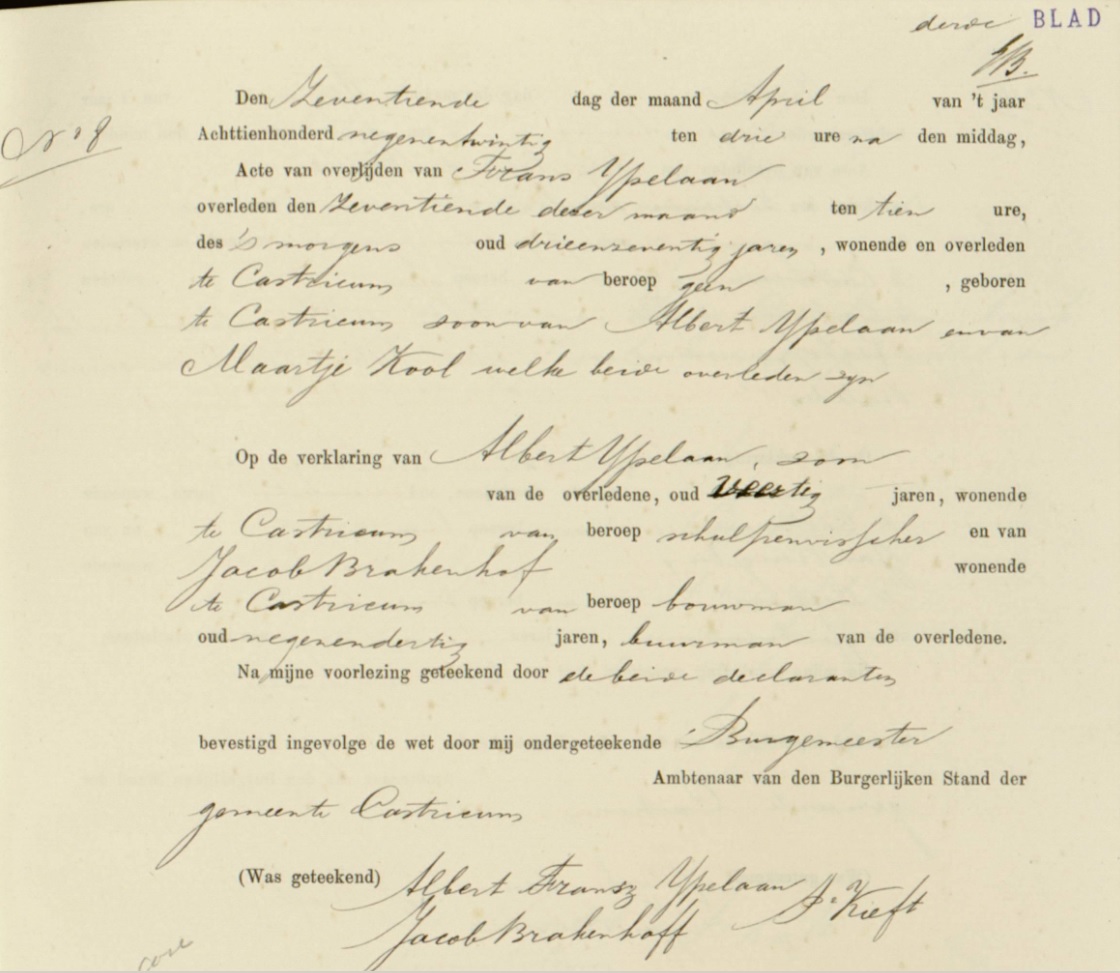 derde BLAD
No 8
Den Zeventiende dag der maand April van 't jaar
Achttienhonderd negenentwintig ten drie ure na den middag,
Acte van overlijden van Frans Ypelaan
overleden den Zeventiende dezer maand ten tien ure,
des 's morgens oud drieenzeventig jaren, wonende en overleden
te Castricum van beroep geen, geboren
te Castricum zoon van Albert Ypelaan en van
Maartje Kool welke beide overleden zyn
Op de verklaring van Albert Ypelaan, zoon
van de overledene, oud Veertig jaren, wonende
te Castricum van beroep schulpenvisscher en van
Jacob Brakenhof wonende
te Castricum van beroep bouwman
oud negenendertig jaren, buurman van de overledene.
Na mijne voorlezing geteekend door de beide declaranten
bevestigd ingevolge de wet door mij ondergeteekende Burgemeester
Ambtenaar van den Burgerlijken Stand der
gemeente Castricum
(Was geteekend) Albert Fransz Ypelaan
Kieft
Jacob Brakenhoff